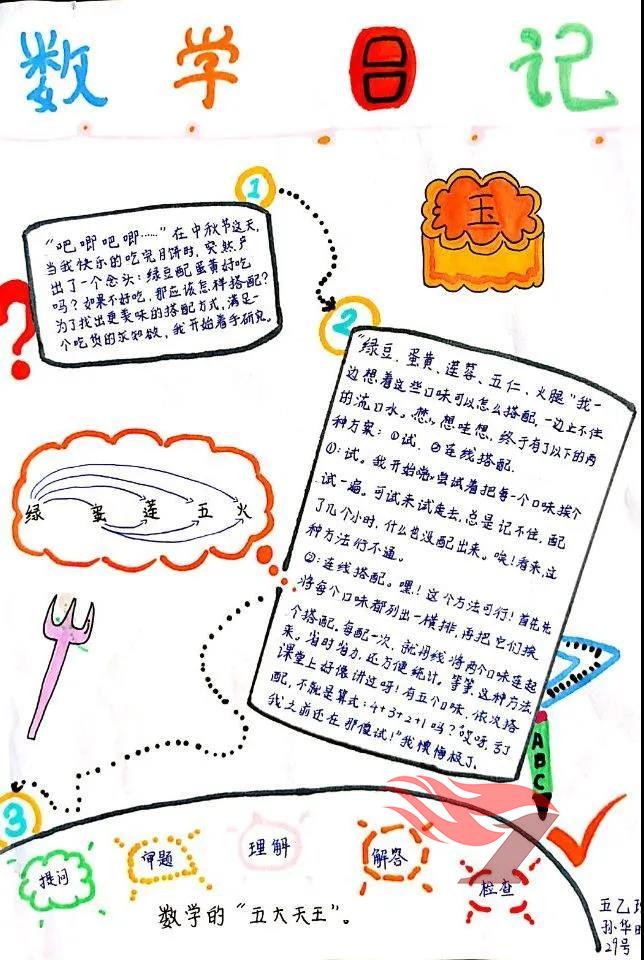 数学日记
1
“吧唧吧唧……”在中秋节这天,
当我快乐的吃完月饼时,突然产
出了一个念头:绿豆配蛋黄好吃
吗?如果不好吃,那应该怎样搭配?
为了找出更美味的搭配方式,满足一
个吃货的求知欲,我开始着手研究。
?
玉
2
“绿豆、蛋黄、莲蓉、五仁、火腿”我一
边想着这些口味可以怎么搭配,一边止不住
的流口水。想哇想,终于有了以下的两
种方案:①试。②连线搭配。
①:试。我开始尝试着把每一个口味挨个
试一遍。可试来试去,总是记不住,配
了几个小时,什么也没配出来。唉!看来,这
种方法行不通。
②:连线搭配。嘿!这个方法可行!首先先
将每个口味都列出一横排,再把它们挨
个搭配,每配一次,就用线将两个口味连起
来。省时省力,还方便统计,等等,这种方法
课堂上好像讲过呀!有五个口味,依次搭
配,不就是算式:4+3+2+1吗?哎呀,亏
我之前还在那傻试!”我懊悔极了。
绿 蛋 莲 五 火
ABC
3
提问 审题 理解 解答 检查
数学的“五大天王”。
五乙班
29号